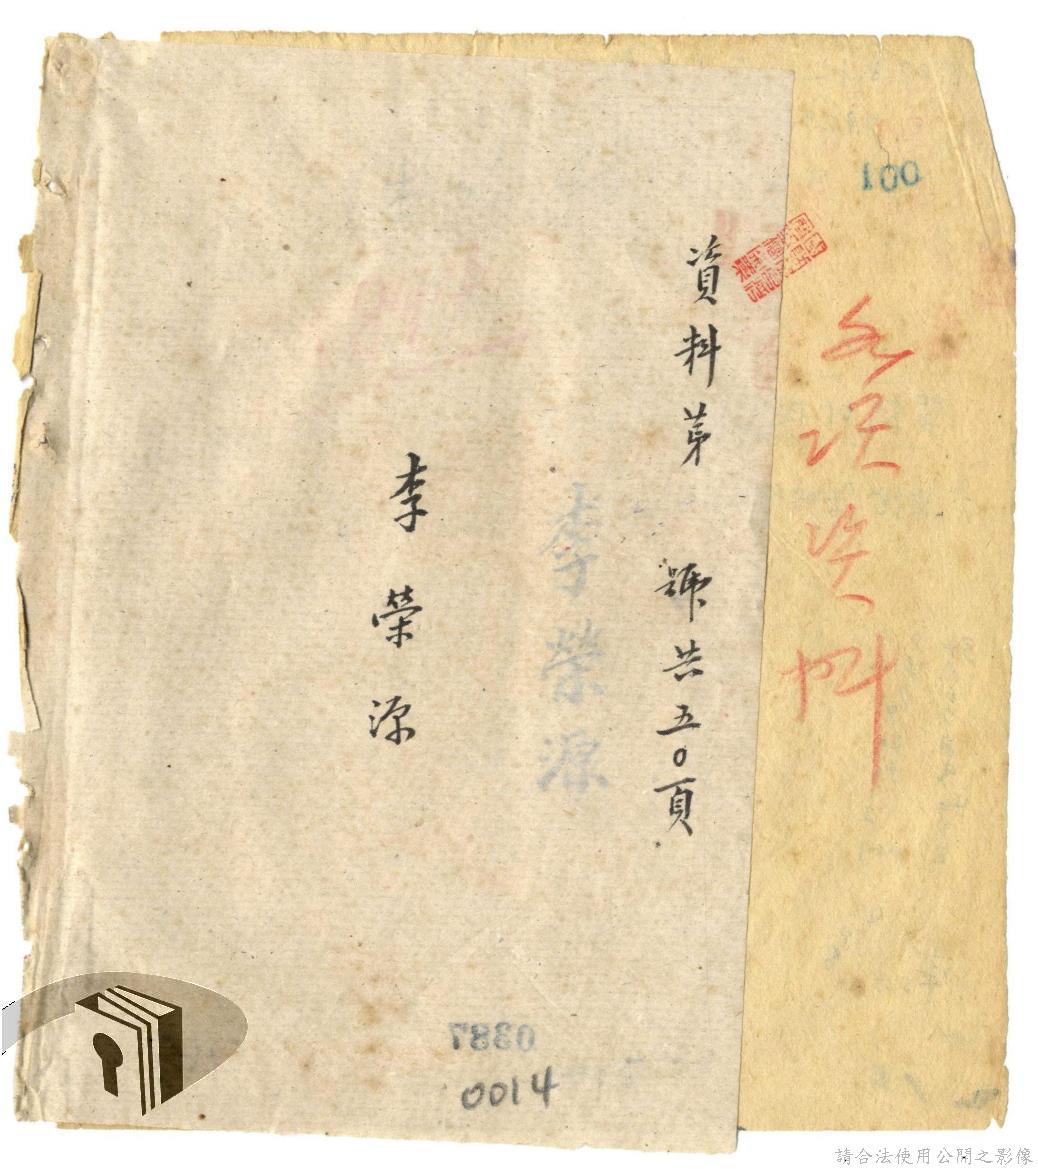 100
各項資料
資料第　號共五〇頁
李榮源
李榮源
0387
0014
請合法使用公開之影像